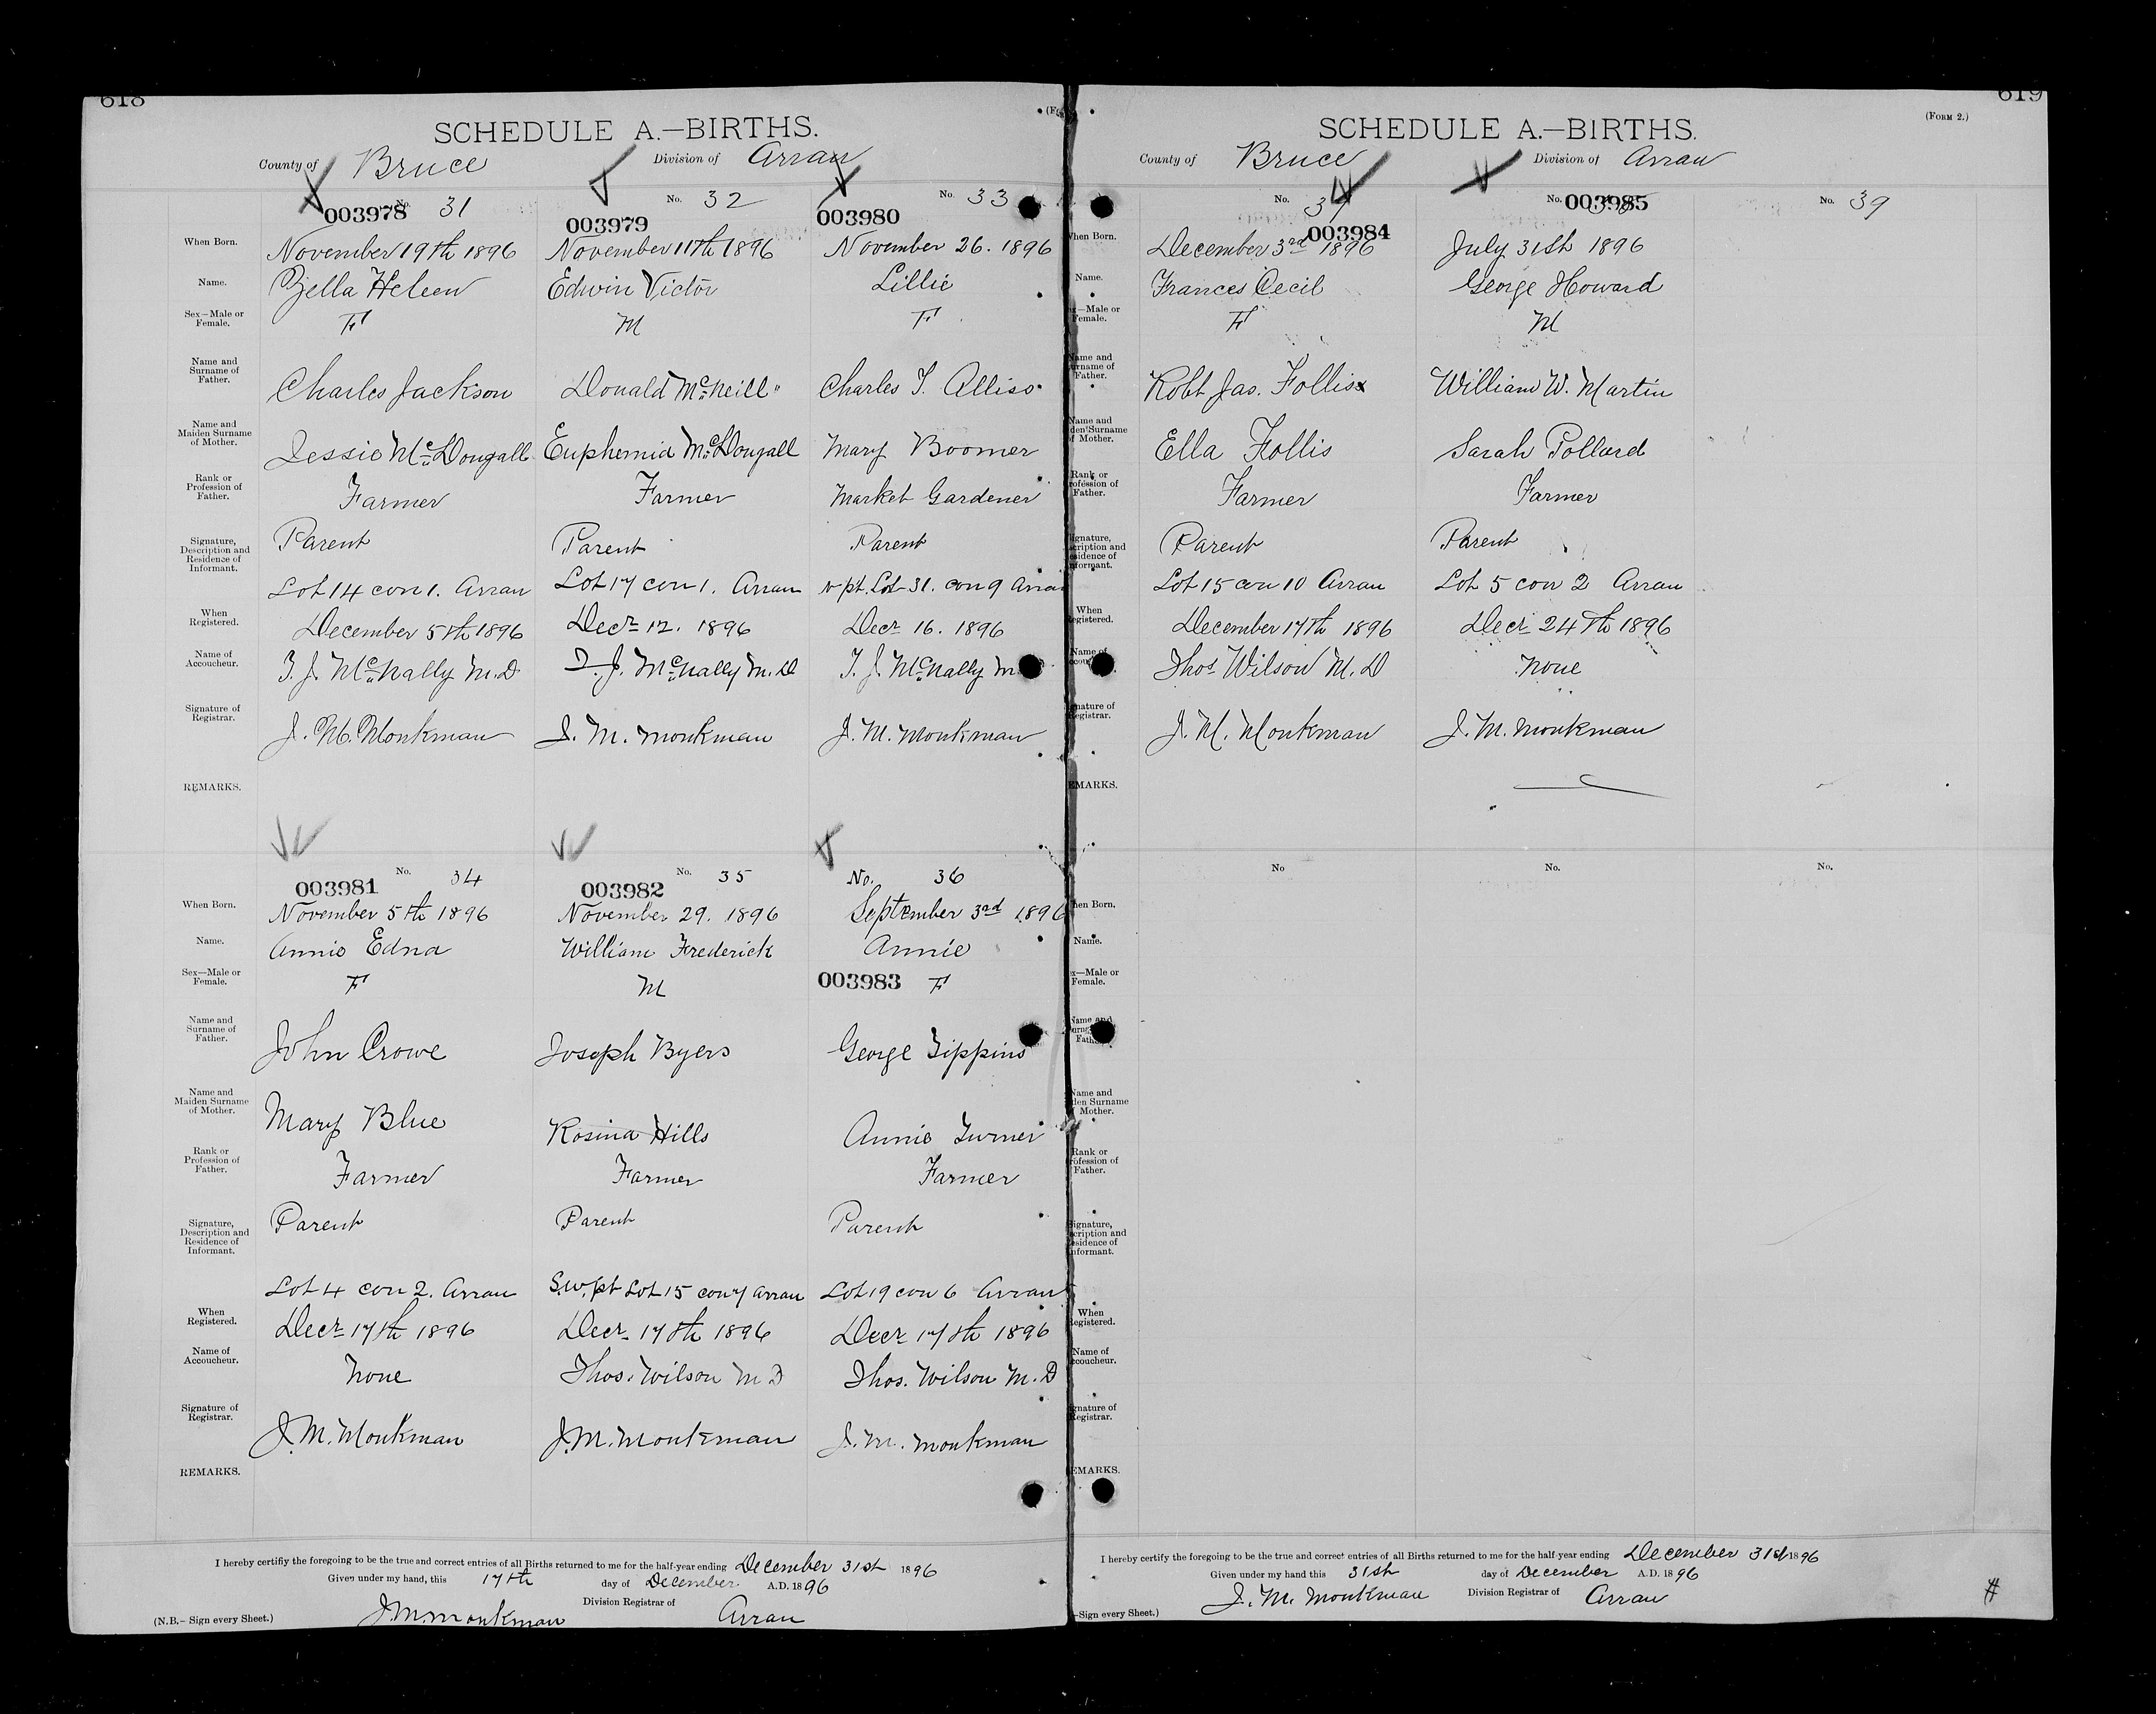 618
SCHEDULE A.—BIRTHS.
County of Bruce Division of Arran
003978 No. 31
When Born. November 19th 1896
Name. Zella Heleen
Sex—Male or Female. F
Name and Surname of Father. Charles Jackson
Name and Maiden Surname of Mother. Jessie McDougall
Rank or Profession of Father. Farmer
Signature, Description and Residence of Informant. Parent
Lot 14 con 1. Arran
When Registered. December 5th 1896
Name of Accoucheur. T. J. McNally M.D
Signature of Registrar. J. M. Monkman
REMARKS.
003979 No. 32
November 11th 1896
Edwin Victor
M
Donald McNeill
Euphemia McDougall
Farmer
Parent
Lot 17 con 1. Arran
Decr 12. 1896
T. J. McNally M.D
J. M. Monkman
003980 No. 33
November 26. 1896
Lillie
F
Charles T. Alliso
Mary Boomer
Market Gardener
Parent
pt. Lot 31. con 9 Arran
Decr 16. 1896
T. J. McNally M
J. M. Monkman
003981 No. 34
When Born. November 5th 1896
Name. Annie Edna
Sex—Male or Female. F
Name and Surname of Father. John Crowe
Name and Maiden Surname of Mother. Mary Blue
Rank or Profession of Father. Farmer
Signature, Description and Residence of Informant. Parent
Lot 4 con 2. Arran
When Registered. Decr 17th 1896
Name of Accoucheur. None
Signature of Registrar. J. M. Monkman
REMARKS.
003982 No. 35
November 29. 1896
William Frederick
M
Joseph Byers
Rosina Hills
Farmer
Parent
S.W. pt Lot 15 con 7 Arran
Decr 17th 1896
Thos. Wilson M.D
J. M. Monkman
No. 36
September 3rd 1896
Annie
003983 F
George Tippins
Annie Turner
Farmer
Parent
Lot 19 con 6 Arran
Decr 17th 1896
Thos. Wilson M.D
J. M. Monkman
I hereby certifiy the foregoing to be the true and correct entries of all Births returned to me for the half-year ending December 31st 1896
Given under my hand, this 17th day of December A.D. 1896
(N.B.—Sign every Sheet.) J. M. Monkman Division Registrar of Arran
619
(FORM 2.)
SCHEDULE A.—BIRTHS.
County of Bruce Division of Arran
No. 37
003984
When Born. December 3rd 1896
Name. Frances Cecil
F
Robt Jas. Follis
Ella Follis
Farmer
Parent
Lot 15 con 10 Arran
December 17th 1896
Thos Wilson M.D
J. M. Monkman
EMARKS.
No. 003985
July 31st 1896
George Howard
M
William W. Martin
Sarah Pollard
Farmer
Parent
Lot 5 con 2 Arran
Decr 24th 1896
None
J. M. Monkman
No. 39
No
No.
No.
EMARKS.
I hereby certify the foregoing to be the true and correct entries of all Births returned to me for the half-year ending December 31st 1896
Given under my hand this 31st day of December A.D. 1896
—Sign every Sheet.) J. M. Monkman Division Registrar of Arran
#